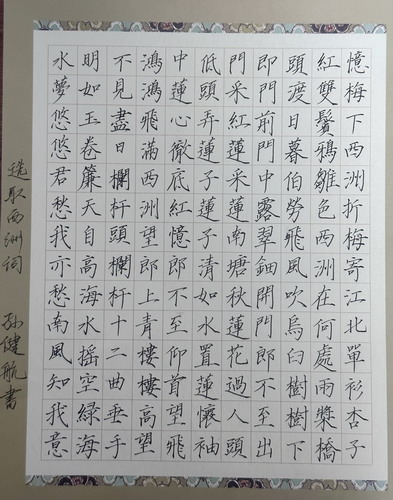 憶梅下西洲折梅寄江北單衫杏子
紅雙鬢鴉雛色西洲在何處兩槳橋
頭渡日暮伯勞飛風吹烏臼樹樹下
即門前門中露翠鈿開門郎不至出
門采紅蓮采蓮南塘秋蓮花過人頭
低頭弄蓮子蓮子清如水置蓮懷袖
中蓮心徹底紅憶郎不至仰首望飛
鴻鴻飛滿西洲望郎上青樓樓高望
不見盡日欄杆頭欄杆十二曲垂手
明如玉卷簾天自高海水搖空綠海
水夢悠悠君愁我亦愁南風知我意
選取西洲詞 孫健航書